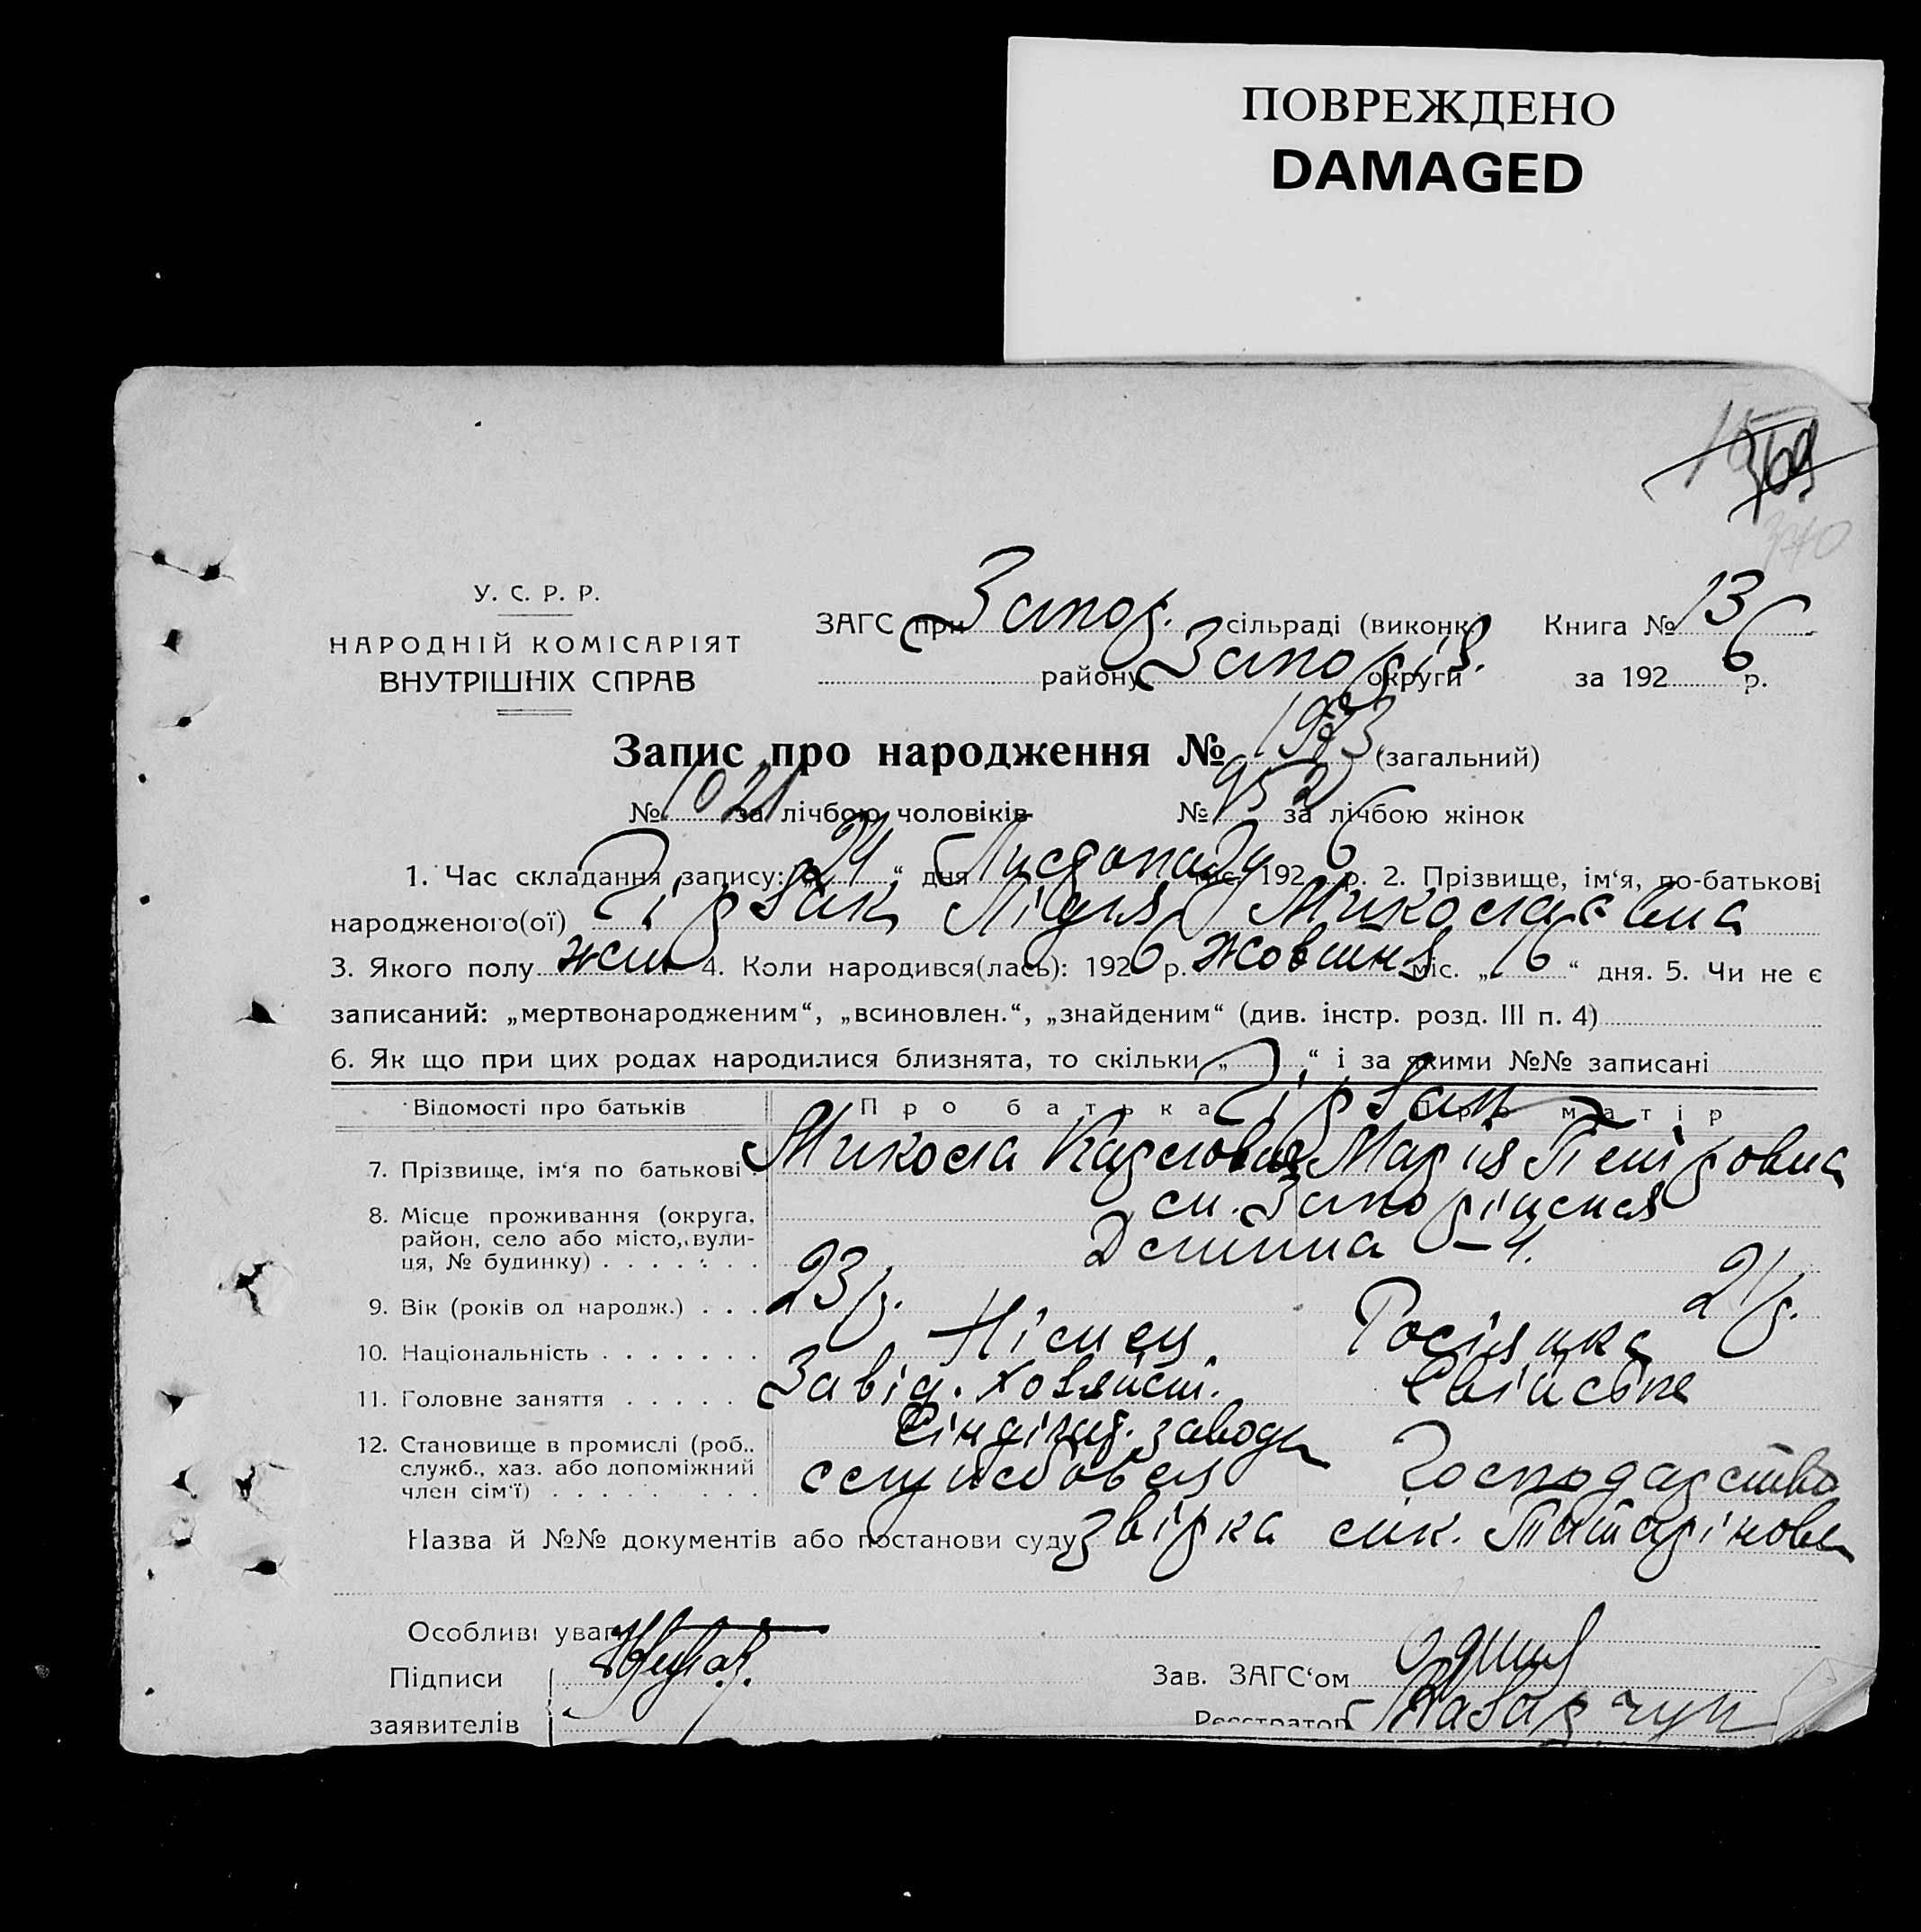 ПОВРЕЖДЕНО
DAMAGED
370
У. С. Р. Р.
НАРОДНІЙ КОМІСАРІЯТ
ВНУТРІШНІХ СПРАВ
ЗАГС при Запор. сільраді (виконк
району Запоріз. округи
Книга № 13
за 1926 р.
Запис про народження № 1973 (загальний)
№ 1021 за лічбою чоловіків № 952 за лічбою жінок
1. Час складання запису: „24“ дня Листопаду міс. 1926 р. 2. Прізвище, ім‘я, по-батькові
народженого(ої) Лідія Миколаєвна
3. Якого полу жін 4. Коли народився(лась): 1926 р. жовтня міс. „16“ дня. 5. Чи не є
записаний: „мертвонародженим“, „всиновлен.“, „знайденим“ (див. інстр. розд. III п. 4)
6. Як що при цих родах народилися близнята, то скільки „ “ і за якими №№ записані
Відомості про батьків Про батька Про матір
7. Прізвище, ім‘я по батькові Микола Карлович Марія Петровна
8. Місце проживання (округа, ст. Запоріжжя
район, село або місто, вули-
ця, № будинку)
9. Вік (років од народж.) 23 р. 21 р.
10. Національність Німец Росіянка
11. Головне заняття Завід. хозяйст. Свійське
заводу
12. Становище в промислі (роб.,
служб., хаз. або допоміжний службовец Господарство
член сім‘ї)
Назва й №№ документів або постанови суду звірка
Особливі уваги
Підписи
заявителів
Зав. ЗАГС‘ом
Реєстратор